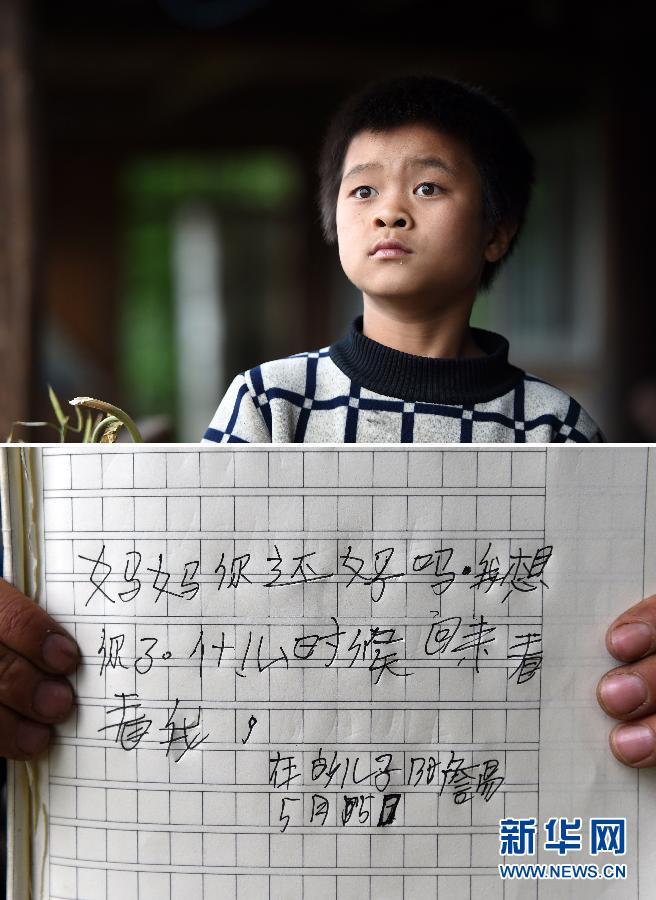 妈妈你还好吗.我想
你了。什么时候回来看
看我，
在的儿子
5月
新华网
WWW.NEWS.CN